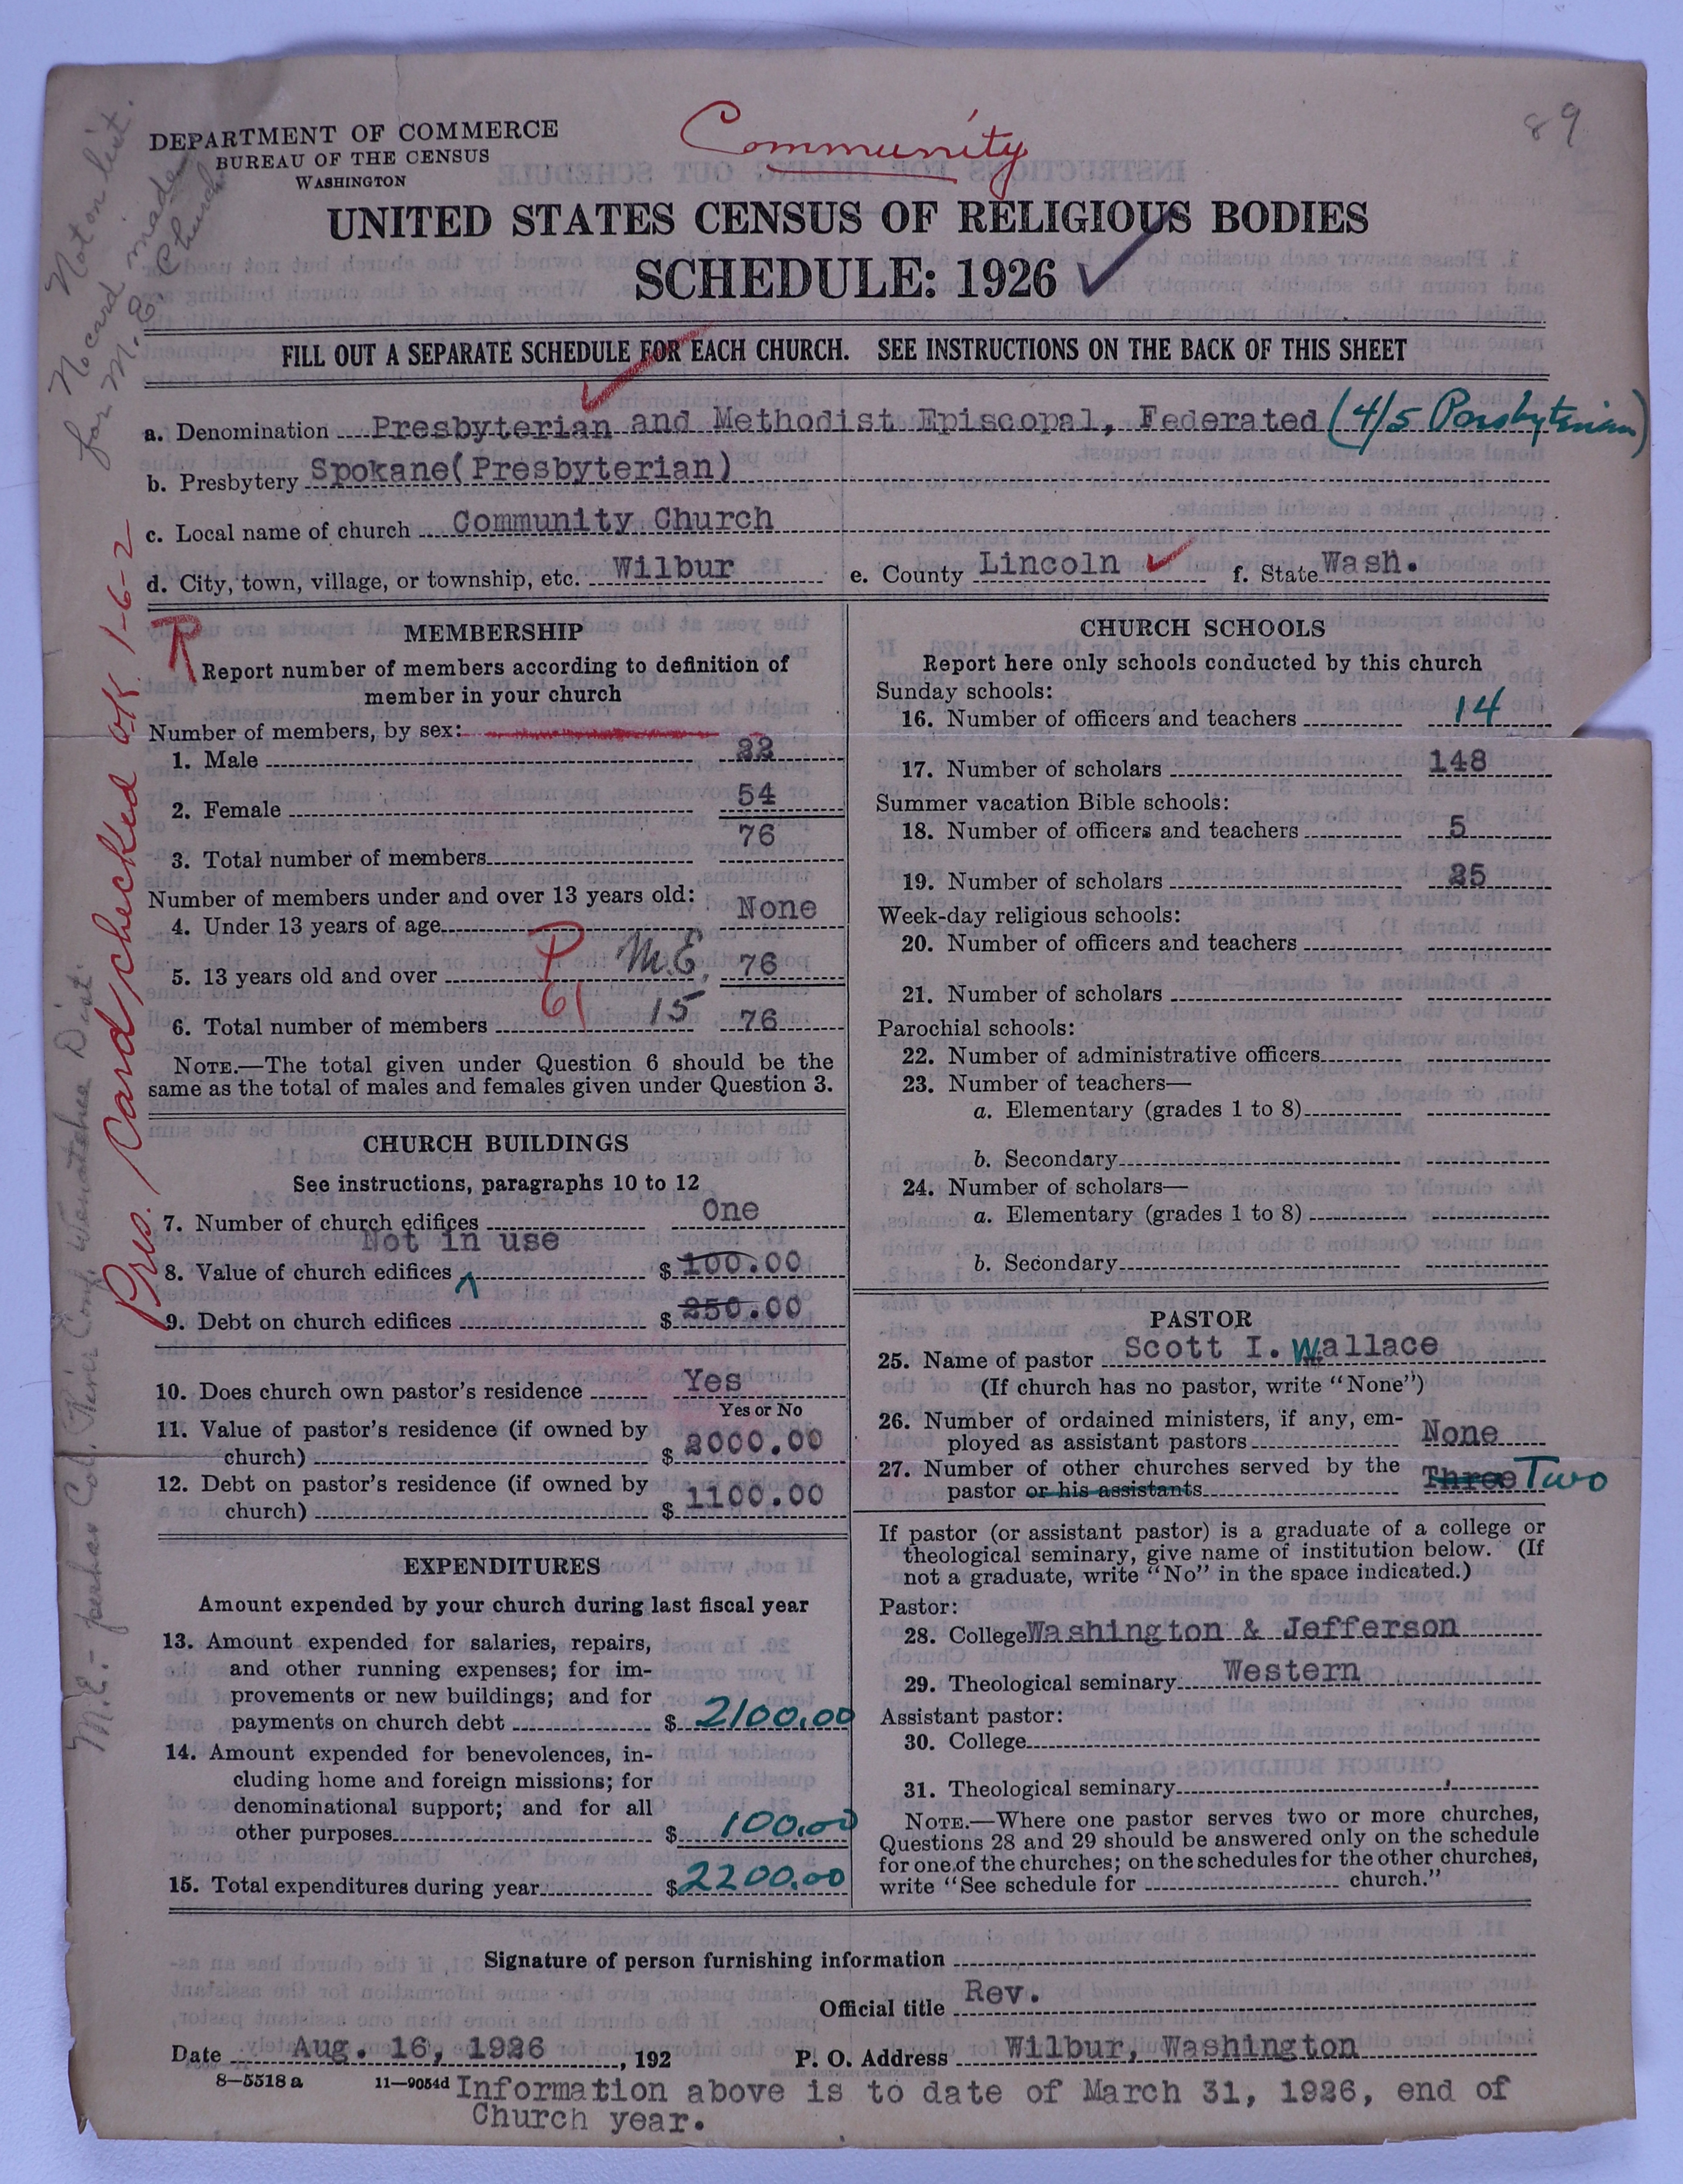 Community
89
DEPARTMENT OF COMMERCE
BUREAU OF THE CENSUS
WASHINGTON
UNITED STATES CENSUS OF RELIGIOUS BODIES
SCHEDULE: 1926
Not on list.
No card made
for M.E. Church
FILL OUT A SEPARATE SCHEDULE FOR EACH CHURCH. SEE INSTRUCTIONS ON THE BACK OF THIS SHEET
a. Denomination Presbyterian and Methodist Episcopal, Federated (4/5 Presbyterian)
b. Presbytery Spokane(Presbyterian)
c. Local name of church Community Church
d. City, town, village, or township, etc. Wilbur e. County Lincoln f. State Wash.
Pres. Card checked OK 1-6-2
M.E. - Col. River Conf. Wenatchee Dist.
MEMBERSHIP
Report number of members according to definition of
member in your church
Number of members, by sex:
1. Male 22
2. Female 54
3. Total number of members 76
Number of members under and over 13 years old:
4. Under 13 years of age None
P M.E.
5. 13 years old and over 76
61 15
6. Total number of members 76
NOTE.—The total given under Question 6 should be the
same as the total of males and females given under Question 3.
CHURCH BUILDINGS
See instructions, paragraphs 10 to 12
7. Number of church edifices One
Not in use
8. Value of church edifices $ 100.00
9. Debt on church edifices $ 250.00
10. Does church own pastor's residence Yes
Yes or No
11. Value of pastor's residence (if owned by
church) $ 2000.00
12. Debt on pastor's residence (if owned by
church) $ 1100.00
EXPENDITURES
Amount expended by your church during last fiscal year
13. Amount expended for salaries, repairs,
and other running expenses; for im-
provements or new buildings; and for
payments on church debt $ 2100.00
14. Amount expended for benevolences, in-
cluding home and foreign missions; for
denominational support; and for all
other purposes $ 100.00
15. Total expenditures during year $ 2200.00
CHURCH SCHOOLS
Report here only schools conducted by this church
Sunday schools:
16. Number of officers and teachers 14
17. Number of scholars 148
Summer vacation Bible schools:
18. Number of officers and teachers 5
19. Number of scholars 25
Week-day religious schools:
20. Number of officers and teachers
21. Number of scholars
Parochial schools:
22. Number of administrative officers
23. Number of teachers—
a. Elementary (grades 1 to 8)
b. Secondary
24. Number of scholars—
a. Elementary (grades 1 to 8)
b. Secondary
PASTOR
25. Name of pastor Scott I. Wallace
(If church has no pastor, write "None")
26. Number of ordained ministers, if any, em-
ployed as assistant pastors None
27. Number of other churches served by the
pastor or his assistants Three Two
If pastor (or assistant pastor) is a graduate of a college or
theological seminary, give name of institution below. (If
not a graduate, write "No" in the space indicated.)
Pastor:
28. College Washington & Jefferson
29. Theological seminary Western
Assistant pastor:
30. College
31. Theological seminary
NOTE.—Where one pastor serves two or more churches,
Questions 28 and 29 should be answered only on the schedule
for one of the churches; on the schedules for the other churches,
write "See schedule for church."
Signature of person furnishing information
Official title Rev.
Date Aug. 16, 1926, 192 P. O. Address Wilbur, Washington
8-5518 a 11-9054d Information above is to date of March 31, 1926, end of
Church year.